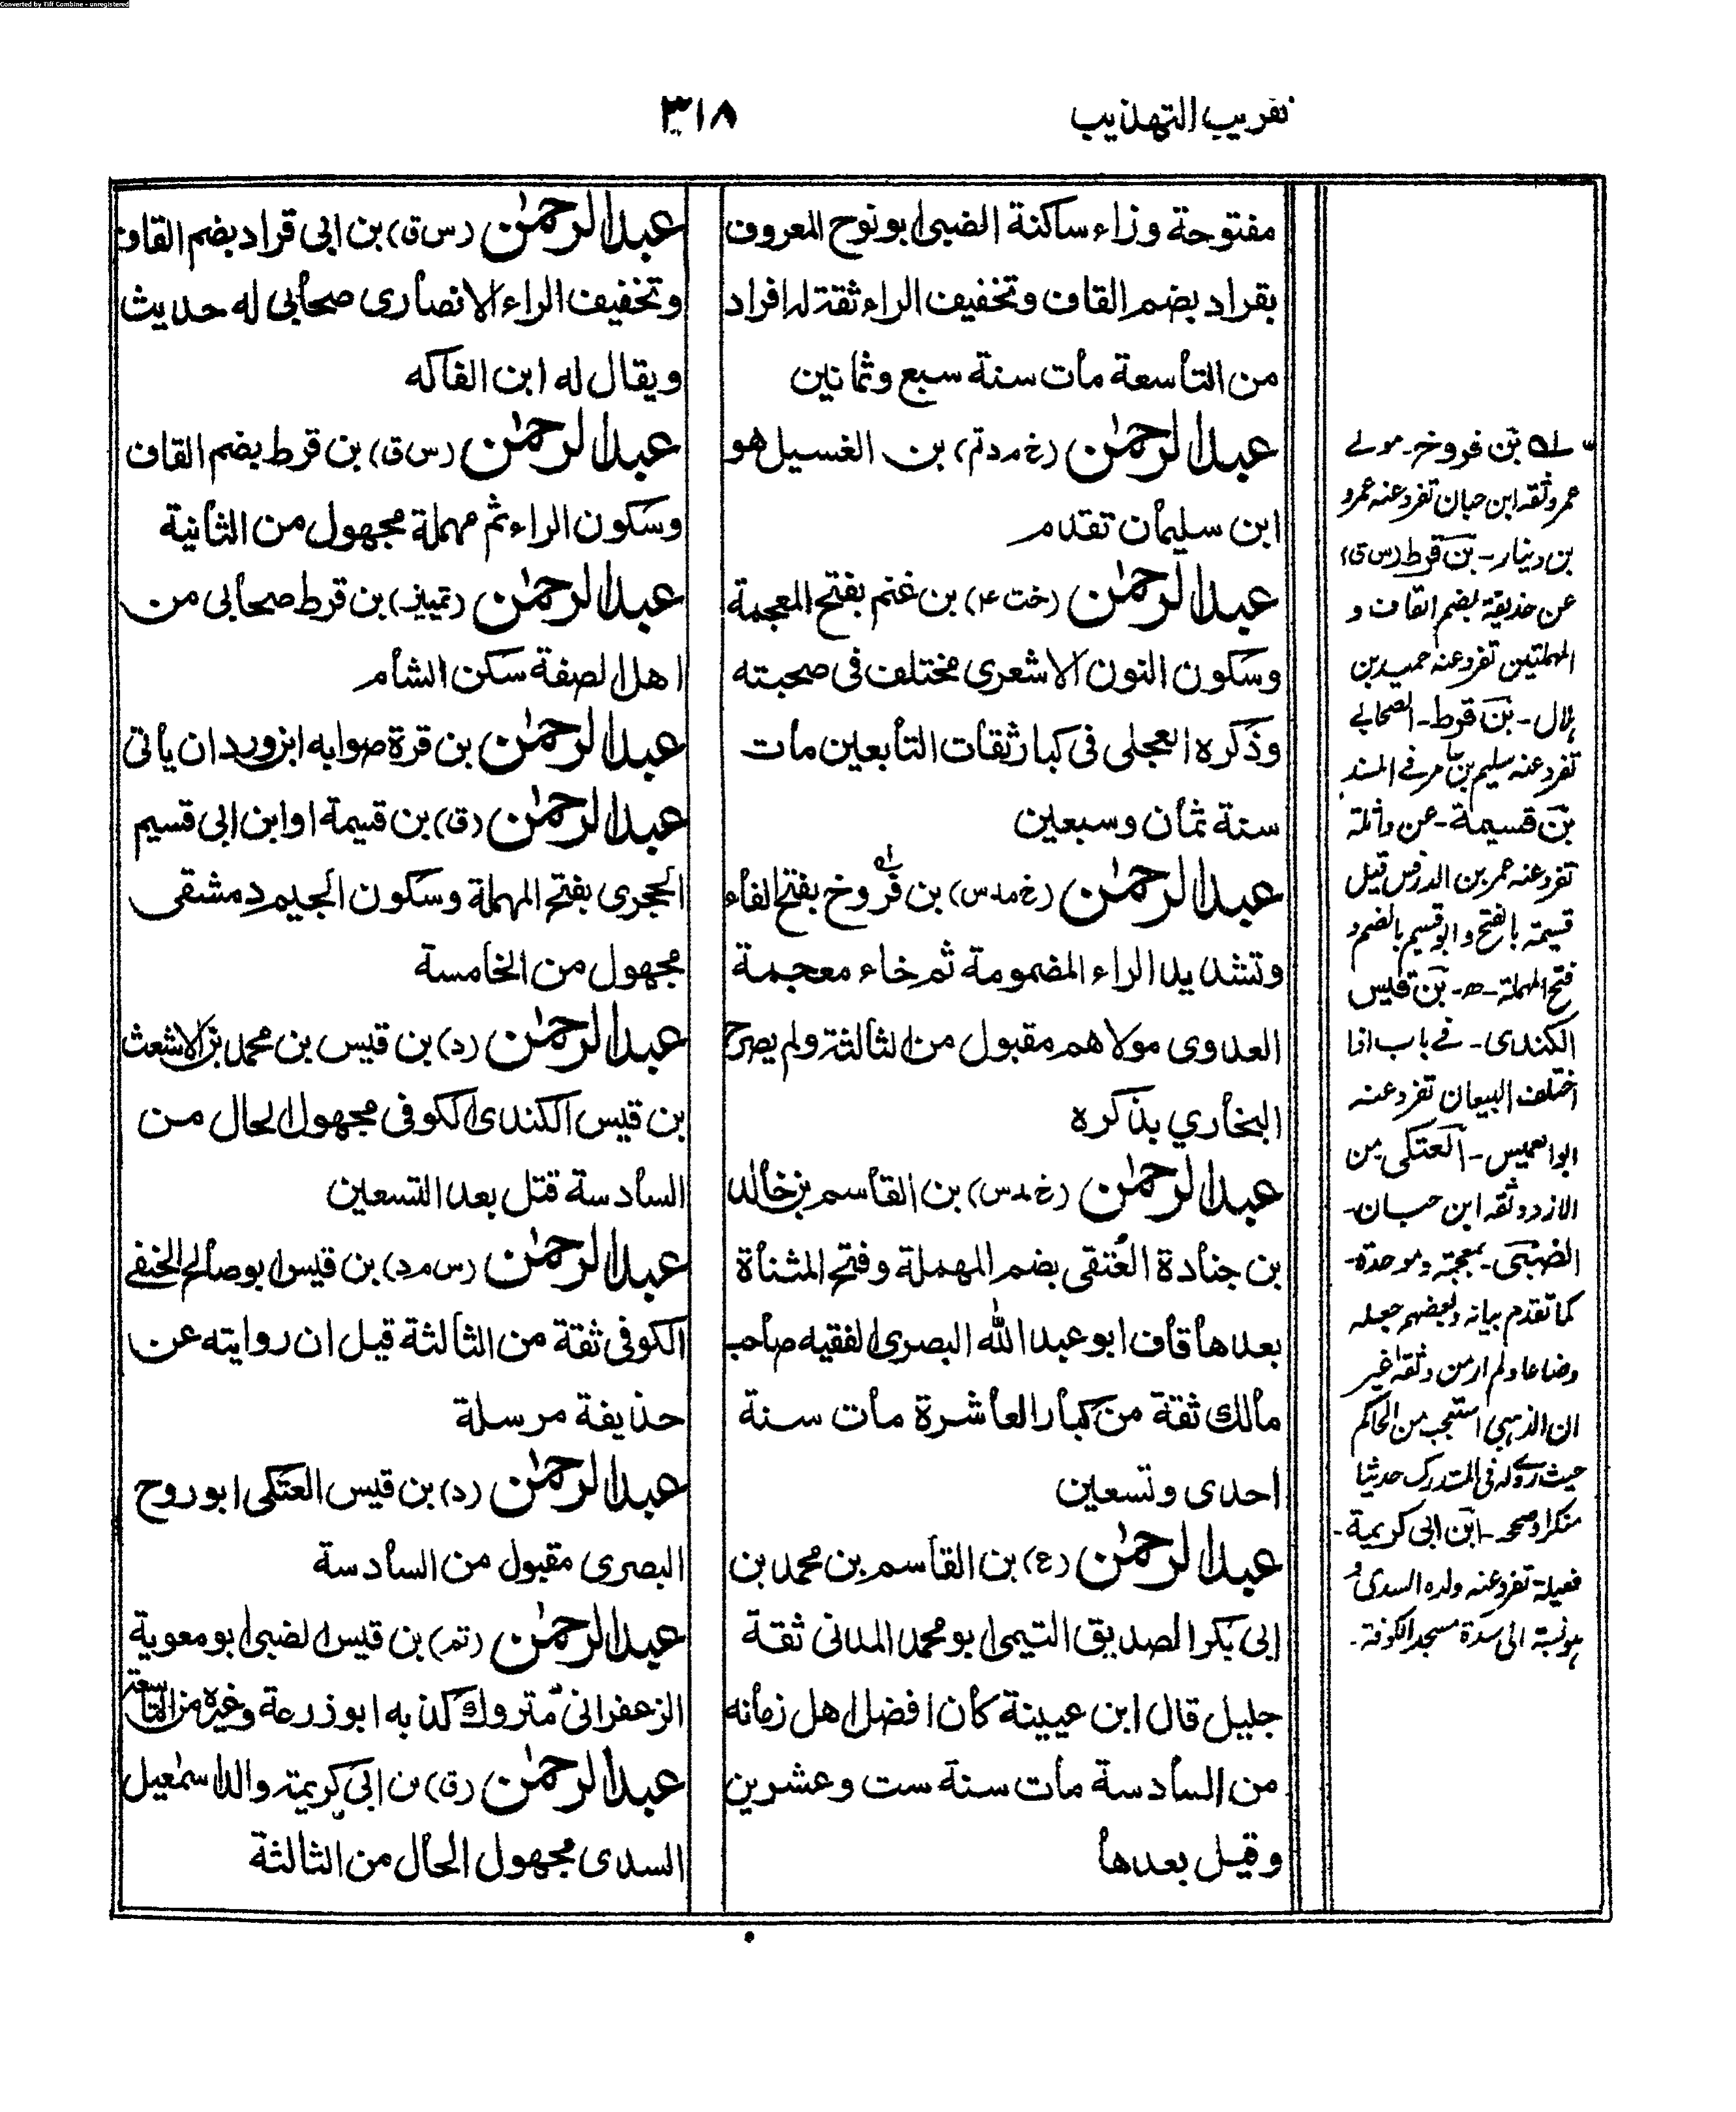 Converted by Tiff Combine - unregistered
تقريب التهذيب
٣١٨
مفتوحة وزاء ساكنة الضبى ابو نوح المعروف
بقراد بضم القاف وتخفيف الراء ثقة له افراد
من التاسعة مات سنة سبع وثمانين
عبد الرحمٰن (خ م د تم) بن الغسيل هو
ابن سليمان تقدم
عبد الرحمٰن (خت ٤) بن غنم بفتح المعجمة
وسكون النون الاشعرى مختلف فى صحبته
وذكره العجلى فى كبار ثقات التابعين مات
سنة ثمان وسبعين
عبد الرحمٰن (خ م د س) بن فروخ بفتح الفاء
وتشديد الراء المضمومة ثم خاء معجمة
العدوى مولاهم مقبول من الثالثة ولم يصرح
البخاري بذكره
عبد الرحمٰن (خ مد س) بن القاسم بن خالد
بن جنادة العُتقى بضم المهملة وفتح المثناة
بعدها قاف ابو عبد الله البصرى الفقيه صاحب
مالك ثقة من كبار العاشرة مات سنة
احدى وتسعين
عبد الرحمٰن (ع) بن القاسم بن محمد بن
ابى بكر الصديق التيمى ابو محمد المدنى ثقة
جليل قال ابن عيينة كان افضل اهل زمانه
من السادسة مات سنة ست وعشرين
وقيل بعدها
عبد الرحمٰن (س ق) بن ابى قراد بضم القاف
وتخفيف الراء الانصارى صحابى له حديث
ويقال له ابن الفاكه
عبد الرحمٰن (س ق) بن قرط بضم القاف
وسكون الراء ثم مهملة مجهول من الثانية
عبد الرحمٰن (تمييز) بن قرط صحابى من
اهل الصفة سكن الشام
عبد الرحمٰن بن قرة صوابه ابن وردان يأتى
عبد الرحمٰن (ق) بن قسيمة او ابن ابى قسيم
الحجرى بفتح المهملة وسكون الجيم دمشقى
مجهول من الخامسة
عبد الرحمٰن (د) بن قيس بن محمد بن الاشعث
بن قيس الكندى الكوفى مجهول الحال من
السادسة قتل بعد التسعين
عبد الرحمٰن (س م د) بن قيس ابو صالح الحنفى
الكوفى ثقة من الثالثة قيل ان روايته عن
حذيفة مرسلة
عبد الرحمٰن (د) بن قيس العتكى ابو روح
البصرى مقبول من السادسة
عبد الرحمٰن (تم) بن قيس الضبى ابو معوية
الزعفرانى متروك كذبه ابو زرعة وغيره من التاسعة
عبد الرحمٰن (ق) بن ابى كريمة والد اسمٰعيل
السدى مجهول الحال من الثالثة
له بن فروخ - مولے
عمر وثقه ابن حبان تفرد عنه عمرو
بن دينار - بن قرط (س ق)
عن حذيفة بضم القاف و
المهملتين تفرد عنه حميد بن
هلال - بن قرط - الصحابے
تفرد عنه سليم بن عامر فے المسند
بن قسيمة - عن واثلة
تفرد عنه عمر بن الدرفس قيل
قسيمة بالفتح وابو قسيم بالضم و
فتح المهملة - بن قيس
الكندى - فے باب اذا
اختلف البيعان تفرد عنه
ابو العميس - العتكى من
الازد وثقه ابن حبان -
الضبى - بمعجمة وموحدة -
كما تقدم بيانه وبعضهم جعله
وضاعا ولم ار من وثقه غير
ان الذهبى استعجب من الحاكم
حيث روى له فى المستدرك حديثا
منكرا وصححه - ابن ابى كريمة -
تفرد عنه ولده السدى و
هو نسبة الى سدة مسجد الكوفة -